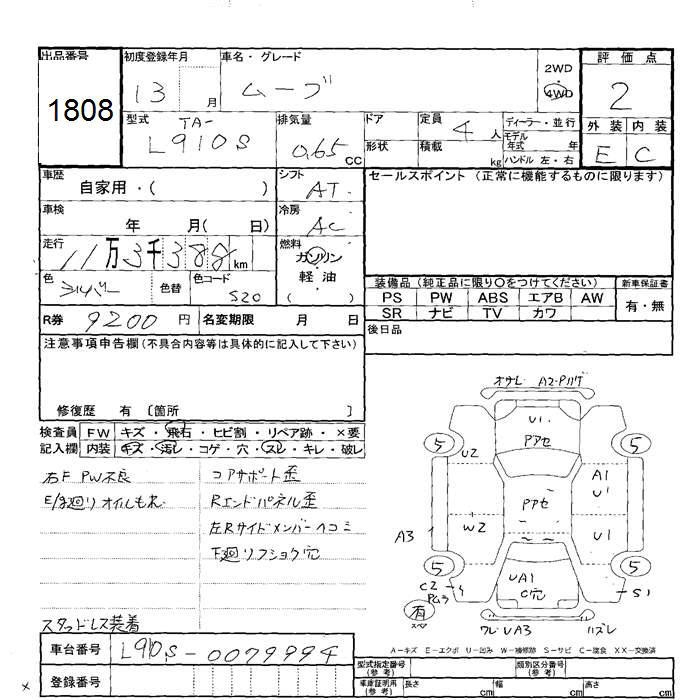 出品番号
1808
初度登録年月
13 月
車名・グレード
ムーブ
2WD
4WD
評価点
2
外装 内装
E C
型式 TA-
L910S
排気量
0.65 CC
ドア
形状
定員 4 人
積載 kg
ディーラー・並行
モデル年式 年
ハンドル 左・右
車歴
自家用・( )
シフト
AT
セールスポイント (正常に機能するものに限ります)
車検
年 月( 日)
冷房
AC
走行
11万3千388km
燃料
ガソリン
軽油
( )
色
シルバー
色替
色コード
S20
装備品 (純正品に限り〇をつけてください)
新車保証書
PS PW ABS エアB AW
有・無
SR ナビ TV カワ
R券 9200 円
名変期限 月 日
後日品
注意事項申告欄(不具合内容等は具体的に記入して下さい)
修復歴 有 〔箇所 〕
検査員 FW キズ・飛石・ヒビ割・リペア跡・×要
記入欄 内装 キズ・汚レ・コゲ・穴・スレ・キレ・破レ
右F PW不良
コアサポート歪
Rエンドパネル歪
左Rサイドメンバーヘコミ
下廻リフショク穴
スタッドレス装着
オサレ A2・Pハゲ
U1
Pアセ
5 5
U2
A1
U1
Pアセ
A3
W2
U1
5 5
UA1
C穴
C2
Pムラ
S1
有
スペア
ワレUA3
ハズレ
A-キズ E-エクボ U-凹み W-補修跡 S-サビ C-腐食 XX-交換済
車台番号 L910S-0079994
登録番号
型式指定番号
(参考)
類別区分番号
(参考)
車庫証明用
(参考)
長さ cm
幅 cm
高さ cm
×